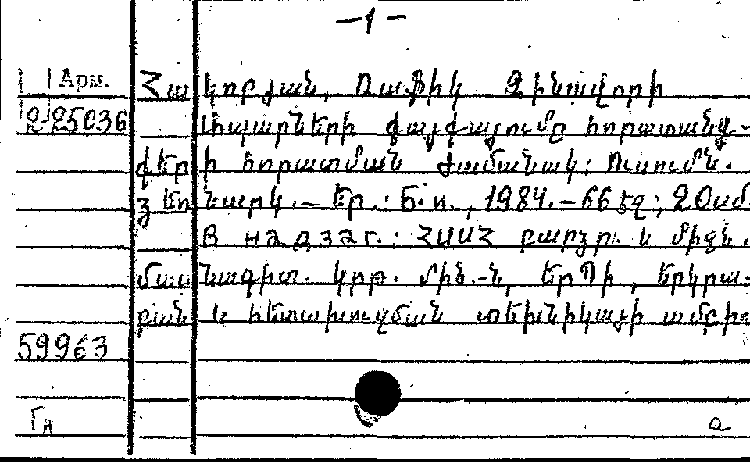 -1-
Арм. Հակոբյան, Ռաֆիկ Զինավորի
225036 Լիպարների փայփայումը հորատանց-
քերի հորատման ժամանակ: Ուսումն.
ձեռնարկ. – Եր.: Б.и., 1984. – 66 էջ; 20 սմ.
В надзаг.: ՀՍՍՀ բարձր. և միջն.
մասնագիտ. կրթ. մին.-ն, ԵրՊԻ, Երկրա-
բան. և հետախուզման տեխնիկայի ամբիո
59963
Гн а